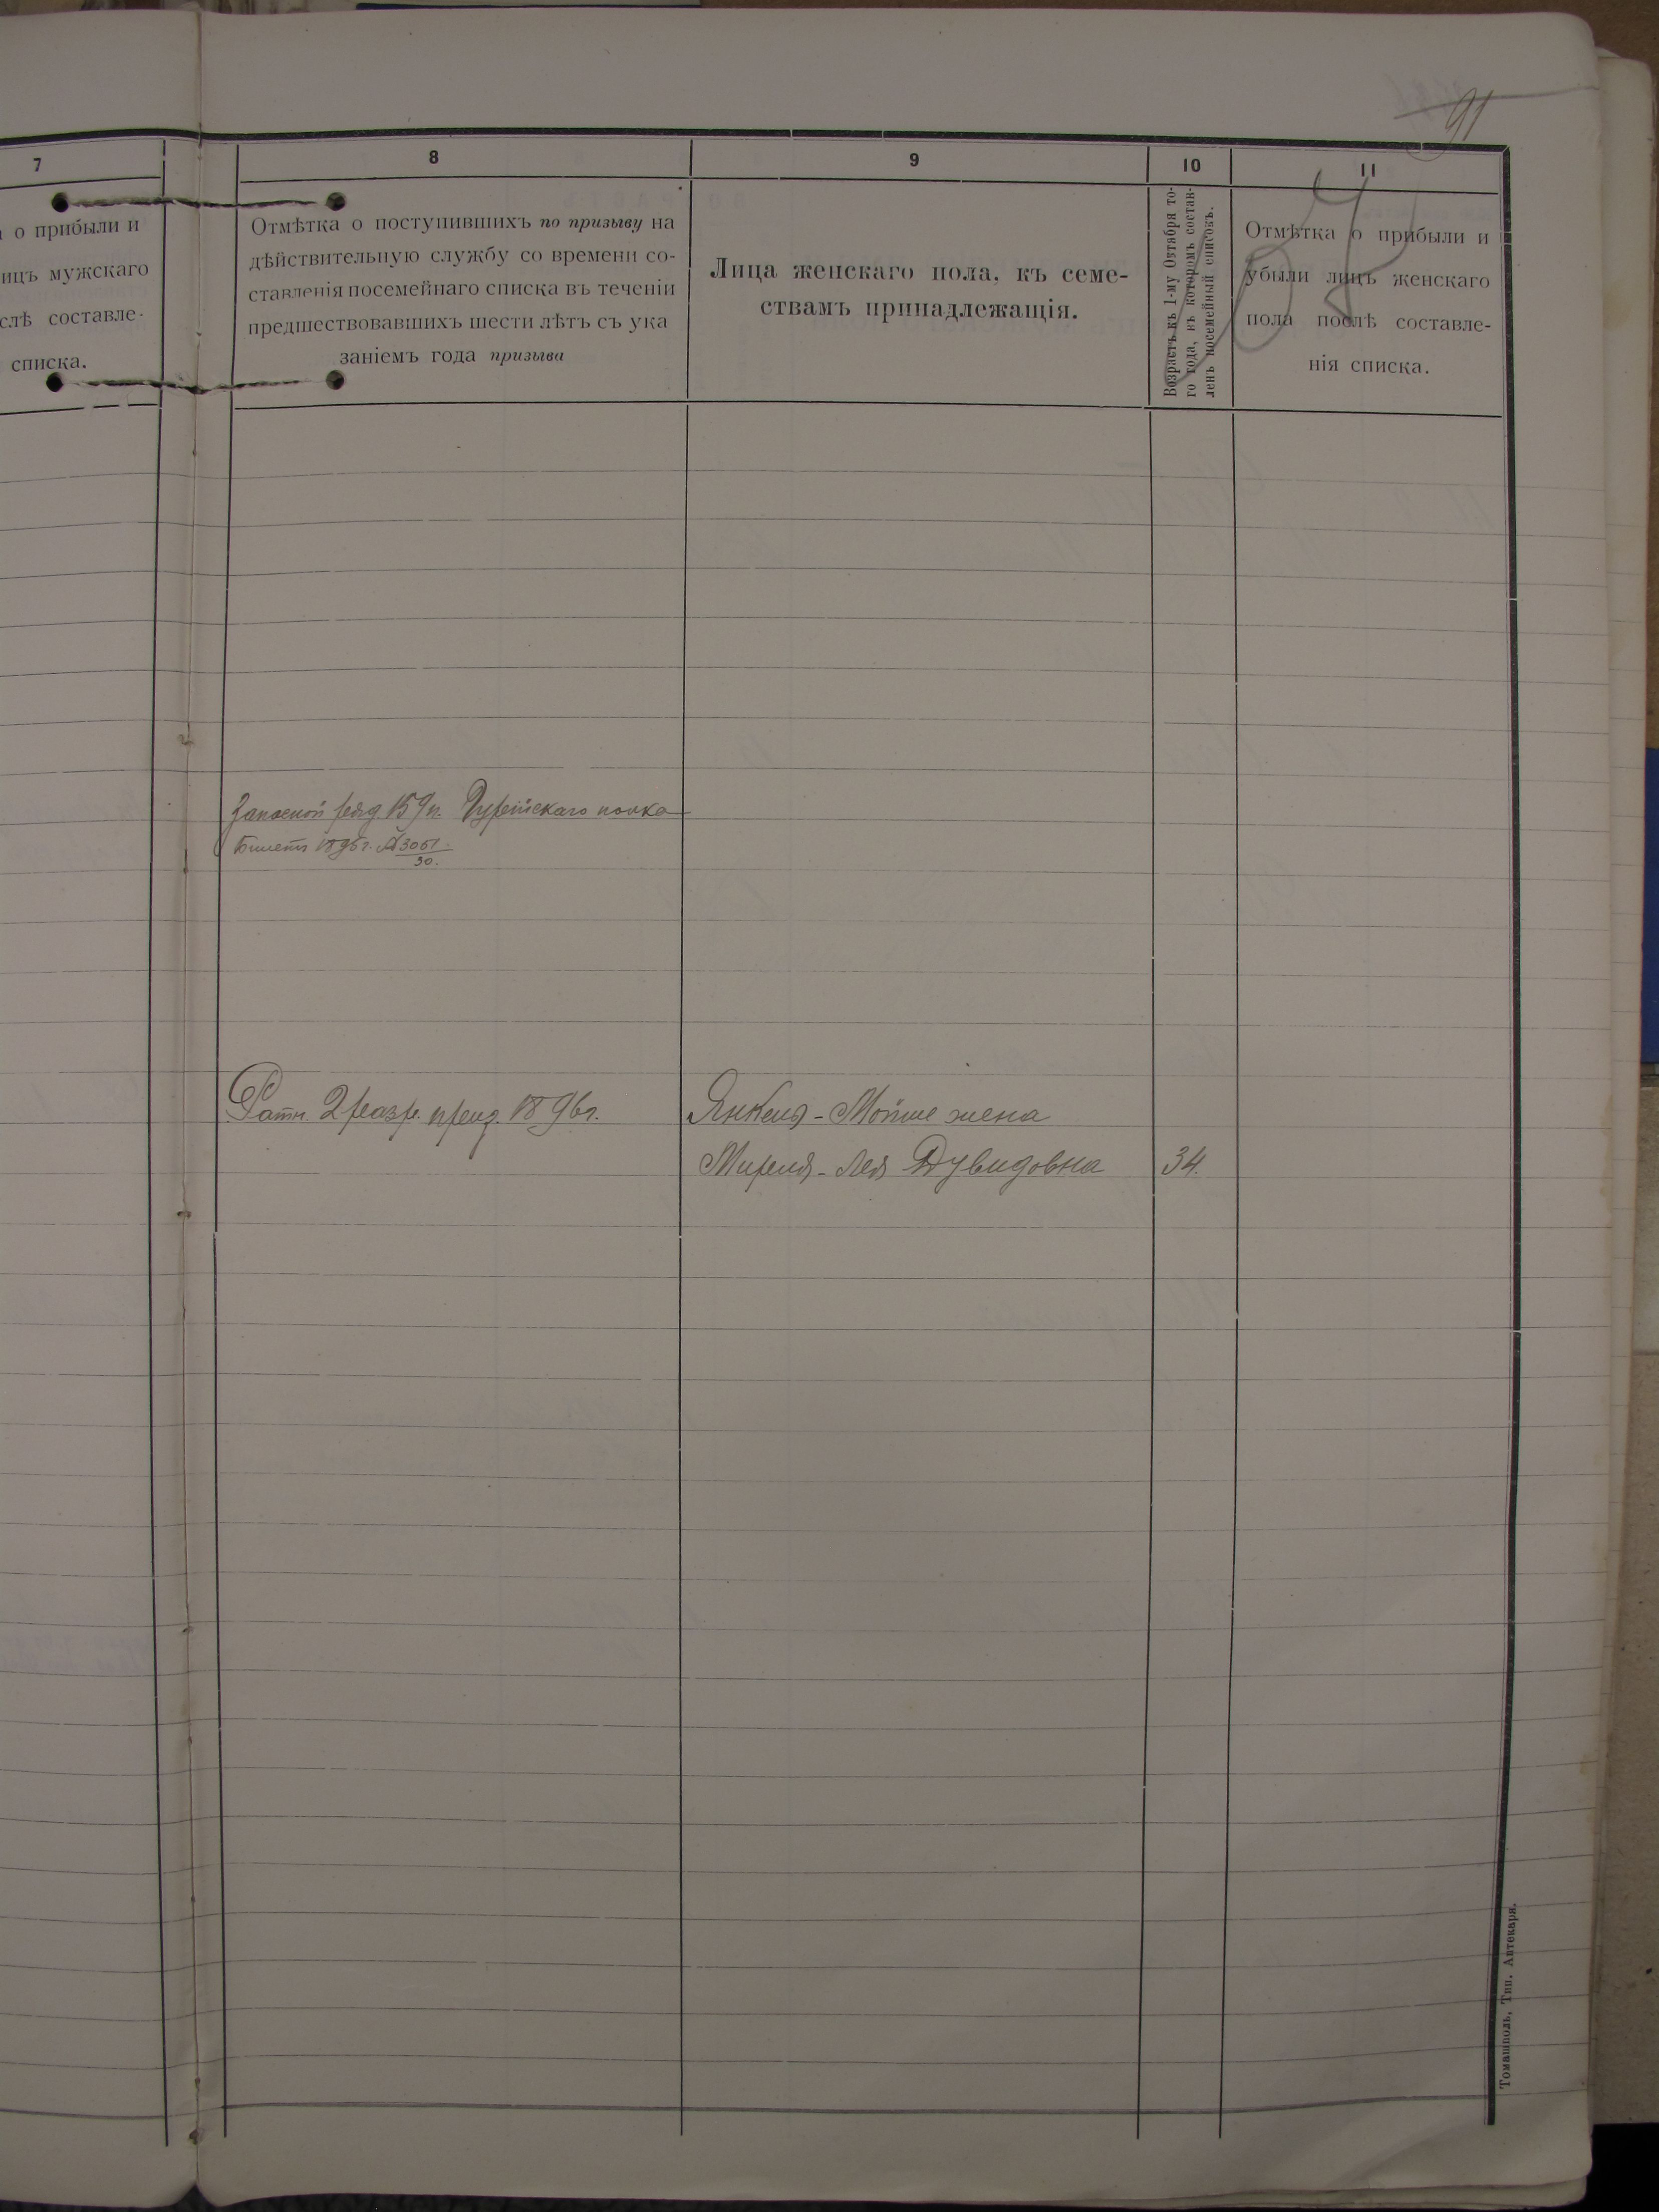 91
7
8
9
10
11
о прибыли и
ицъ мужскаго
слѣ составле-
списка.
Отмѣтка о поступившихъ по призыву на
дѣйствительную службу со времени со-
ставленія посемейнаго списка въ теченіи
предшествовавшихъ шести лѣтъ съ ука
заніемъ года призыва
Лица женскаго пола, къ семе-
ствамъ принадлежащія.
Возрастъ къ 1-му Октября то-
го года, къ которомъ состав-
ленъ посемейный списокъ.
Отмѣтка о прибыли и
убыли лицъ женскаго
пола послѣ составле-
нія списка.
Запасной ряд. 159 п. Гурійскаго полка
Билетъ 1895г. № 3051
30.
Ратн. 2 разр. приз. 1896г.
Янкеля-Мойше жена
Миреля-Лея Дувидовна 34.
Томашполь, Тип. Аптекаря.